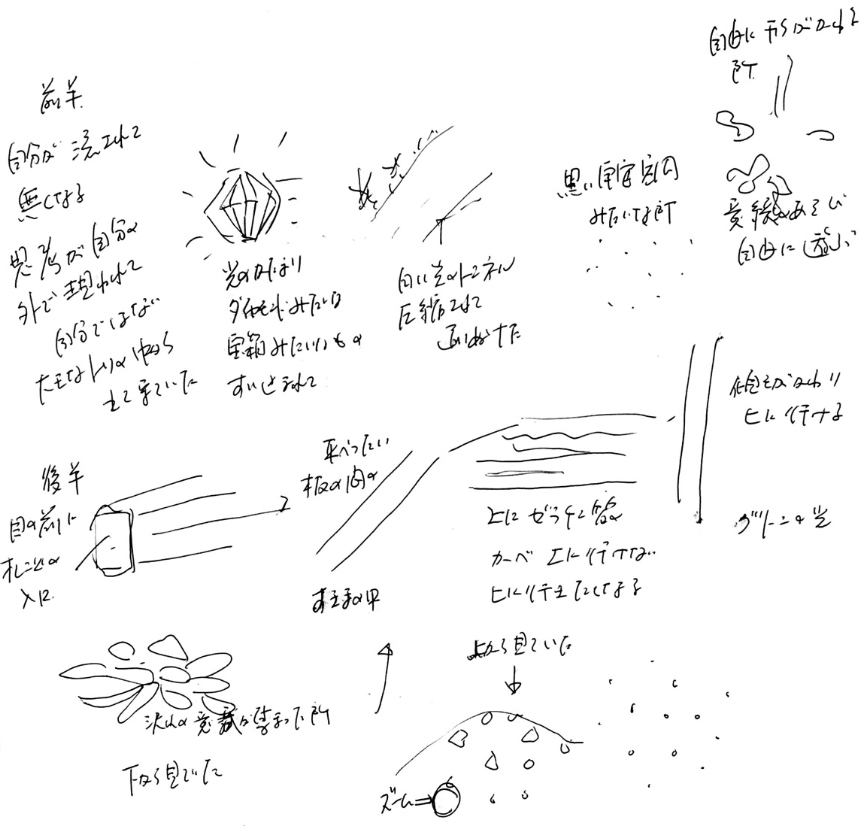 前半
自分が流されて
無くなる
思考が自分の
外で
自分ではない
大きな
出て来ていた
光のかたまり
ダイヤモンドみたいな
宝箱みたいなもの
すいこまれて
白い光のトンネル
圧縮されて
通りぬけた
黒い宇宙空間
みたいな所
自由に形がかわる
所
自由に遊ぶ
後半
目の前に
入口
平べったい
板の間の
すきまの中
上にゼラチン
カーベ 上に行けない
上に行きたくなる
色がかわり
上に行ける
グリーンの光
沢山の意識が集まった所
下から見ていた
上から見ていた
ズーム⇒